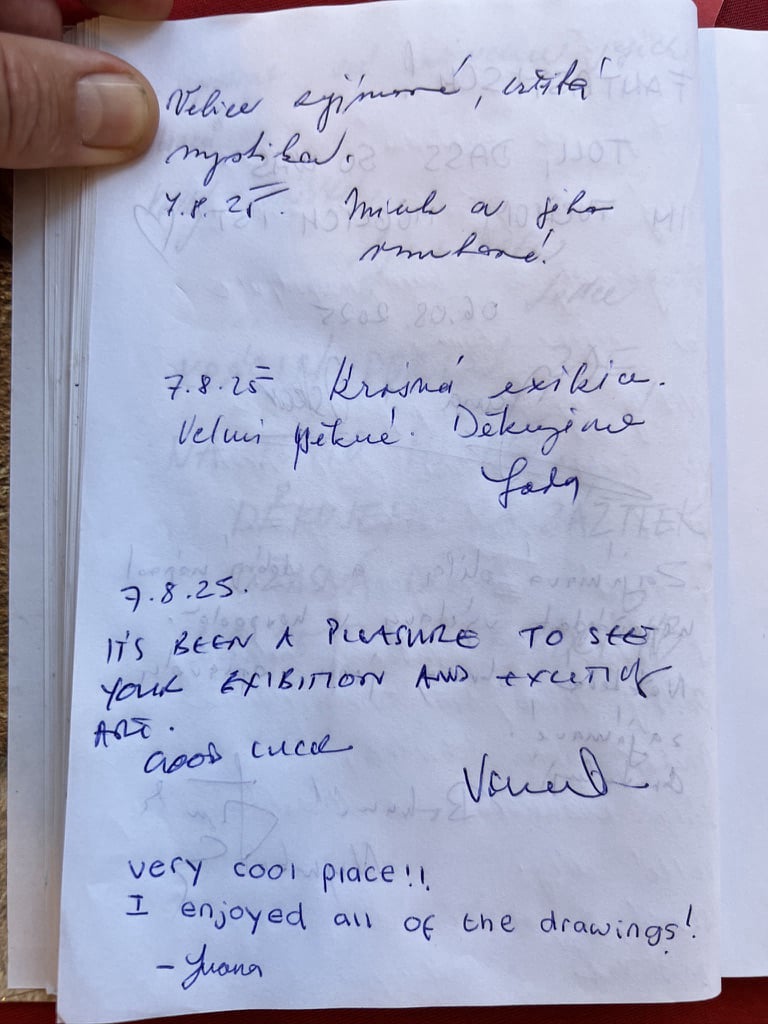 Velice zajímavé, určitá
mystika.
7.8.25. a jeho
7.8.25 Krásná exibice.
Velmi pěkné. Děkujeme
7.8.25.
IT'S BEEN A PLEASURE TO SEE
YOUR EXIBITION AND EXCITING
ART.
GOOD LUCK
very cool place!!
I enjoyed all of the drawings!
- Juana